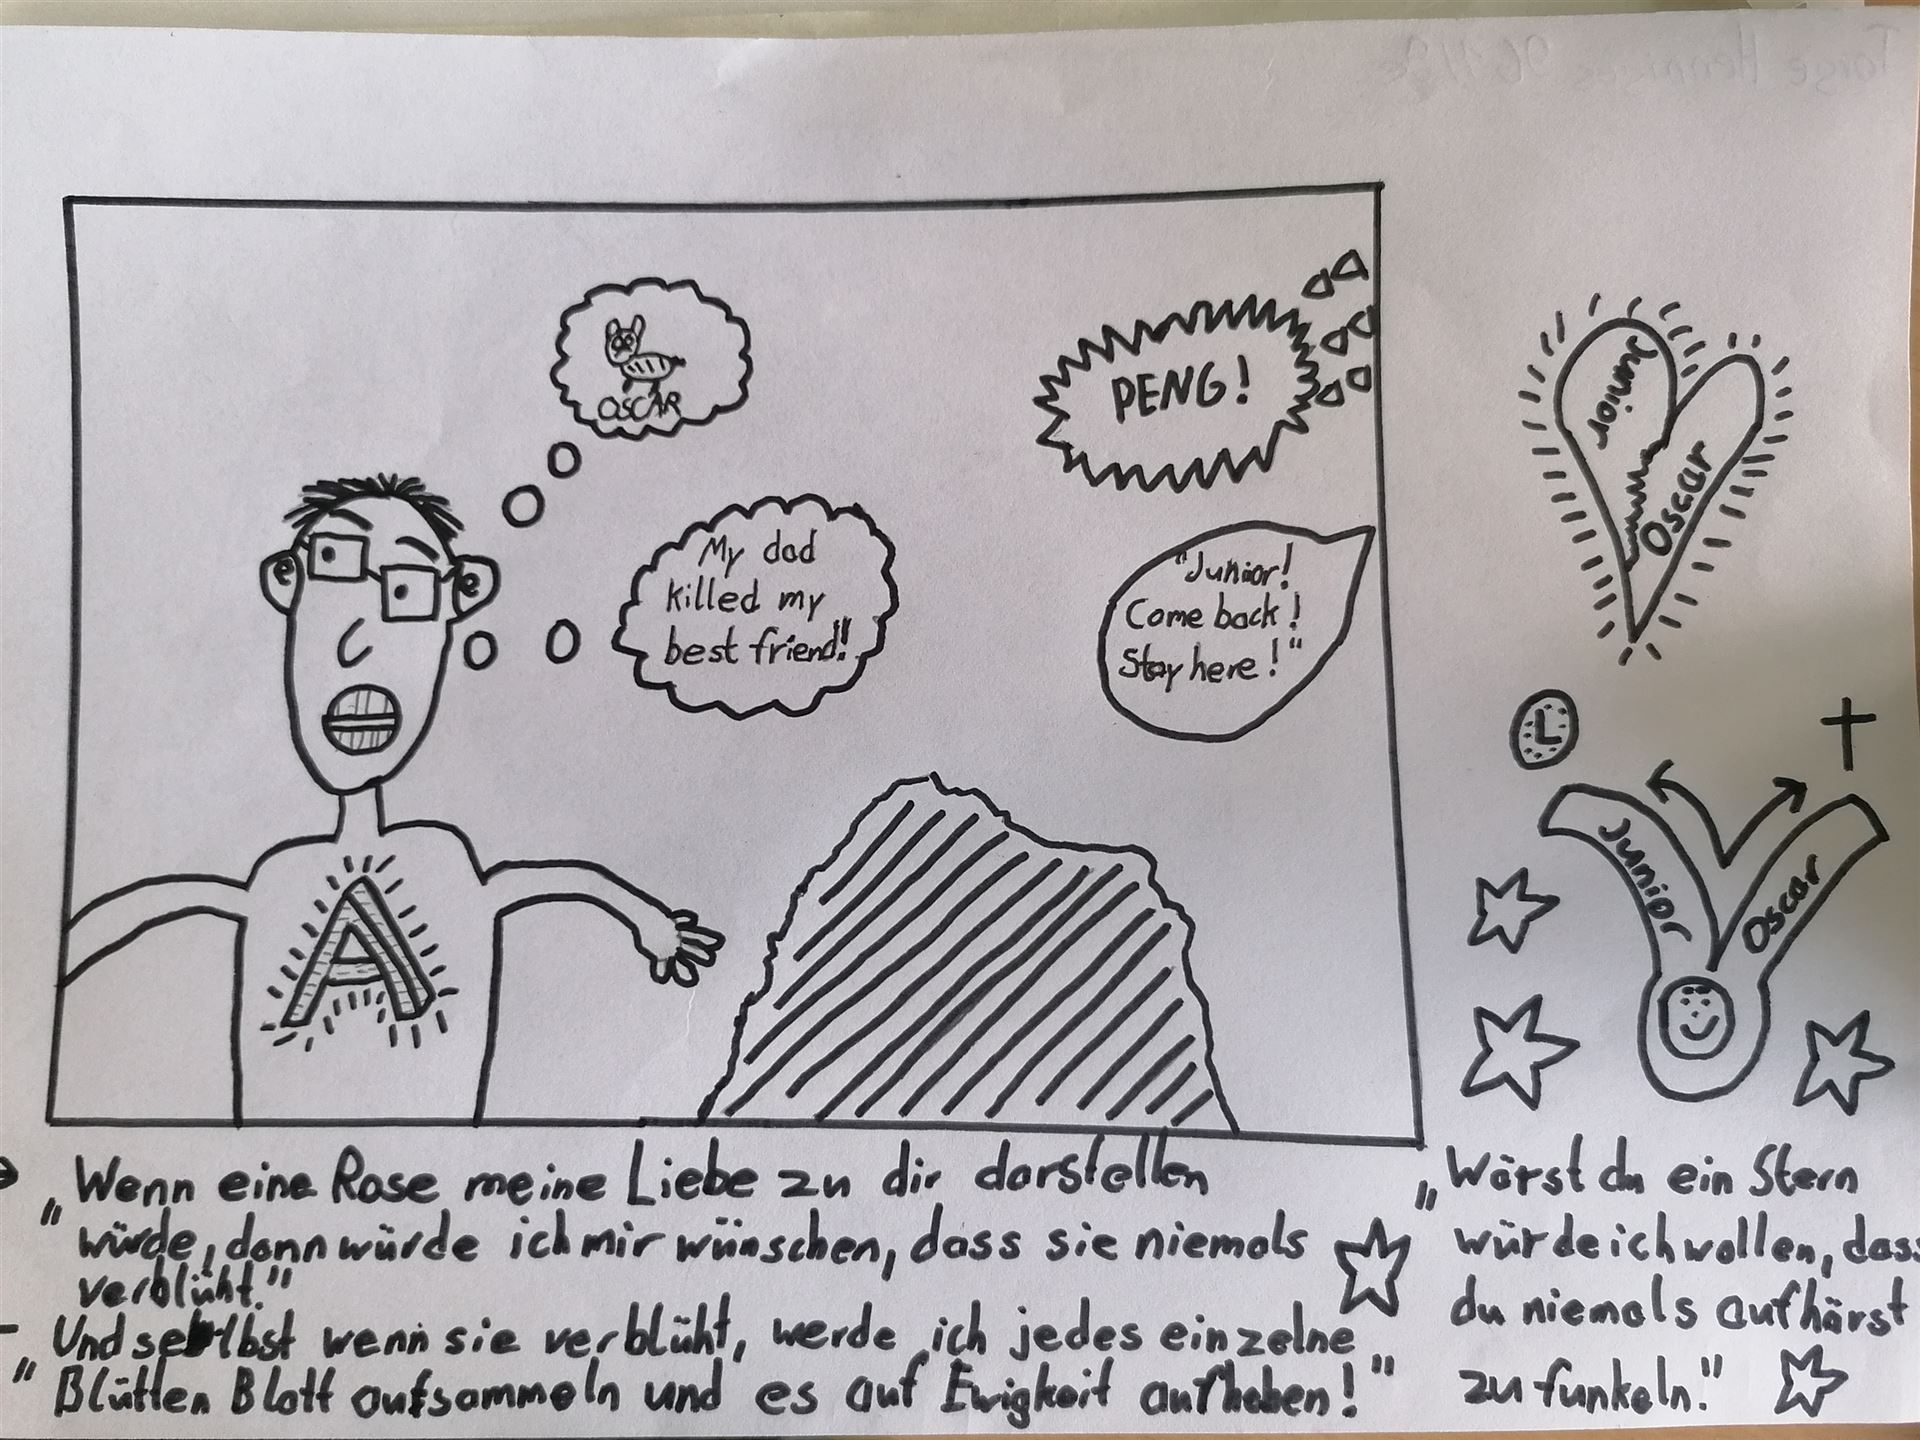 OSCAR
PENG!
My dad
killed my
best friend!
"Junior!
Come back!
Stay here!"
e
e
A
Junior
Oscar
L
Junior
Oscar
„Wenn eine Rose meine Liebe zu dir darstellen
würde, dann würde ich mir wünschen, dass sie niemals
verblüht."
- Und selbst wenn sie verblüht, werde ich jedes einzelne
"Blütten Blatt aufsammeln und es auf Ewigkeit aufheben!"
„Wärst du ein Stern
würde ich wollen, dass
du niemals aufhärst
zu funkeln."